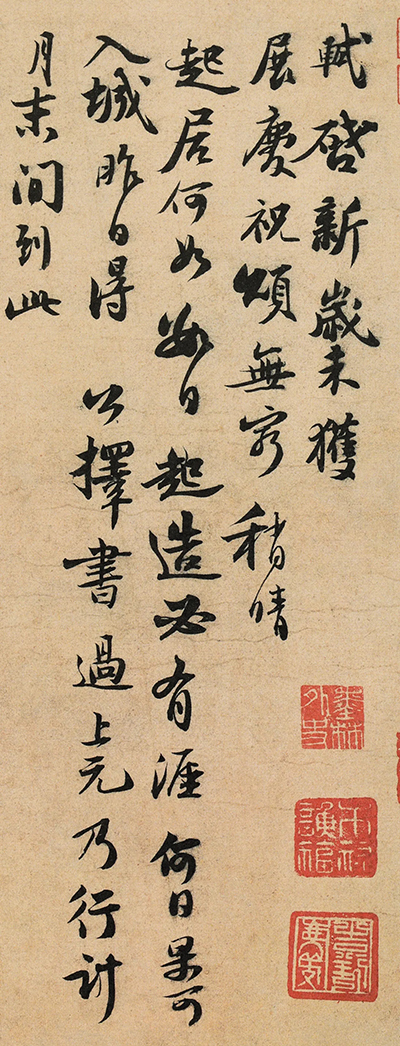 軾啓新歲未獲
展慶祝頌無窮稍晴
起居何如數日起造必有涯何日果可
入城昨日得公擇書過上元乃行計
月末間到此